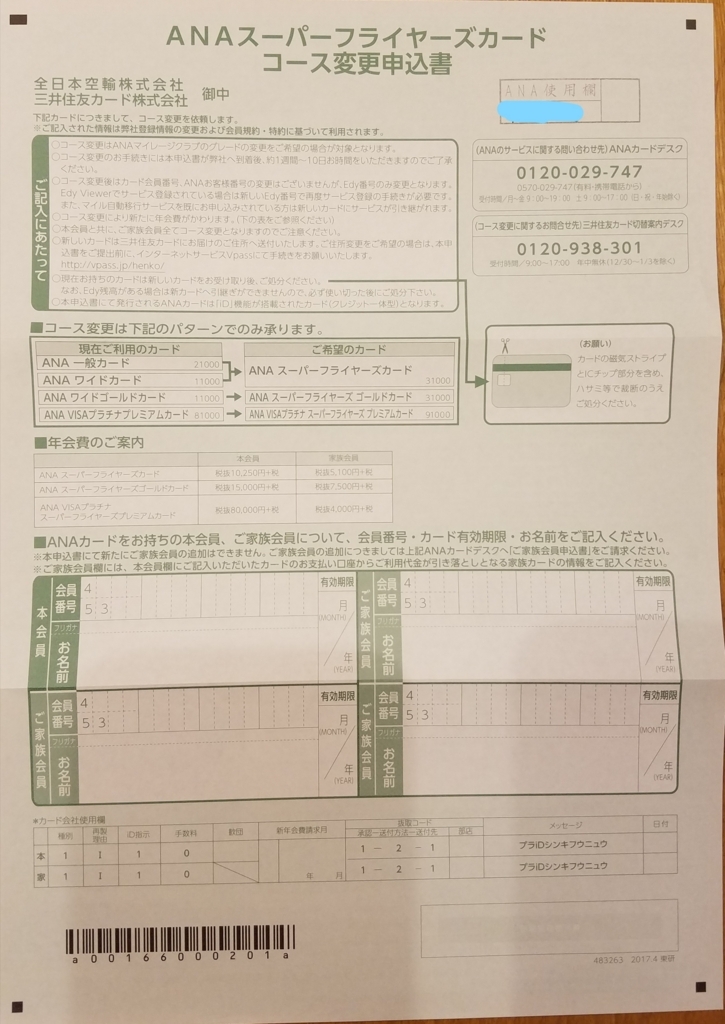 ANAスーパーフライヤーズカード
コース変更申込書
全日本空輸株式会社
三井住友カード株式会社 御中
ANA使用欄
下記カードにつきまして、コース変更を依頼します。
※ご記入された情報は弊社登録情報の変更および会員規約・特約に基づいて利用されます。
ご記入にあたって
○コース変更はANAマイレージクラブのグレードの変更をご希望の場合が対象となります。
○コース変更のお手続きには本申込書が弊社へ到着後、約1週間〜10日お時間をいただきますのでご了承
ください。
○コース変更後はカード会員番号、ANAお客様番号の変更はございませんが、Edy番号のみ変更となります。
Edy Viewerでサービス登録されている場合は新しいEdy番号で再度サービス登録の手続きが必要です。
また、マイル自動移行サービスを既にお申し込みされている方は新しくカードにサービスが引き継がれます。
○コース変更により新たに年会費がかわります。(下の表をご参照ください)
○本会員と共に、ご家族会員全てコース変更となりますのでご注意ください。
○新しいカードは三井住友カードにお届けのご住所へ送付いたします。ご住所変更をご希望の場合は、本申
込書をご提出前に、インターネットサービスVpassにて手続きをお願いいたします。
http://vpass.jp/henko/
○現在お持ちのカードは新しいカードをお受け取り後、ご処分ください。
なお、Edy残高がある場合は新カードへ引継ぎができませんので、必ず使い切った後にご処分下さい。
○本申込書にて発行されるANAカードは「iD」機能が搭載されたカード(クレジット一体型)となります。
(ANAのサービスに関する問い合わせ先)ANAカードデスク
0120-029-747
0570-029-747(有料・携帯電話から)
受付時間/月〜金 9:00〜19:00 土 9:00〜17:00(日・祝・年始除く)
(コース変更に関するお問合せ先)三井住友カード切替案内デスク
0120-938-301
受付時間/9:00〜17:00 年中無休(12/30〜1/3を除く)
■コース変更は下記のパターンでのみ承ります。
現在ご利用のカード ご希望のカード
ANA 一般カード 21000
ANA ワイドカード 11000
ANA スーパーフライヤーズカード 31000
ANA ワイドゴールドカード 11000 ANA スーパーフライヤーズ ゴールドカード 31000
ANA VISAプラチナプレミアムカード 81000 ANA VISAプラチナ スーパーフライヤーズ プレミアムカード 91000
(お願い)
カードの磁気ストライプ
とICチップ部分を含め、
ハサミ等で裁断のうえ
ご処分ください。
■年会費のご案内
本会員 家族会員
ANA スーパーフライヤーズカード 税抜10,250円+税 税抜5,100円+税
ANA スーパーフライヤーズゴールドカード 税抜15,000円+税 税抜7,500円+税
ANA VISAプラチナ
スーパーフライヤーズプレミアムカード 税抜80,000円+税 税抜4,000円+税
■ANAカードをお持ちの本会員、ご家族会員について、会員番号・カード有効期限・お名前をご記入ください。
※本申込書にて新たにご家族会員の追加はできません。ご家族会員の追加につきましては上記ANAカードデスクへ「ご家族会員申込書」をご請求ください。
※ご家族会員欄には、本会員欄にご記入いただいたカードのお支払い口座からご利用代金が引き落としとなる家族カードの情報をご記入ください。
本会員 会員番号 4 53 有効期限 月(MONTH) 年(YEAR)
フリガナ
お名前
ご家族会員 会員番号 4 53 有効期限 月(MONTH) 年(YEAR)
フリガナ
お名前
ご家族会員 会員番号 4 53 有効期限 月(MONTH) 年(YEAR)
フリガナ
お名前
ご家族会員 会員番号 4 53 有効期限 月(MONTH) 年(YEAR)
フリガナ
お名前
*カード会社使用欄
種別 再製理由 iD指示 手数料 歓団 新年会費請求月 抜取コード 承認ー送付方法ー送付先 部店 メッセージ 日付
本 1 1 1 0 1 − 2 − 1 プラiDシンキフウニュウ
家 1 1 1 0 年 月 1 − 2 − 1 プラiDシンキフウニュウ
a00166000201a
483263 2017.4 東研